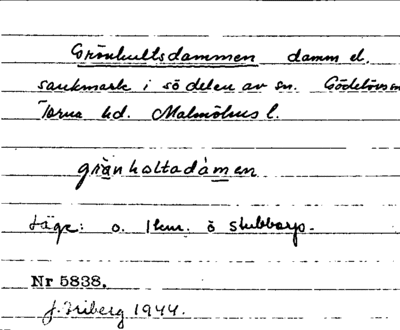 Grönhultsdammen damm el.
sankmark i sö delen av sn. Gödelövs sn
Torna hd. Malmöhus l.
gränhaltadàmen
Läge: o. 1 km. ö Stubbarp.
Nr 5838.
J. Friberg 1944.